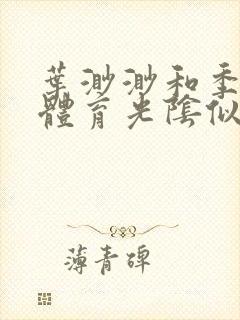 葉渺渺和季
體育光陰似
薄青碑